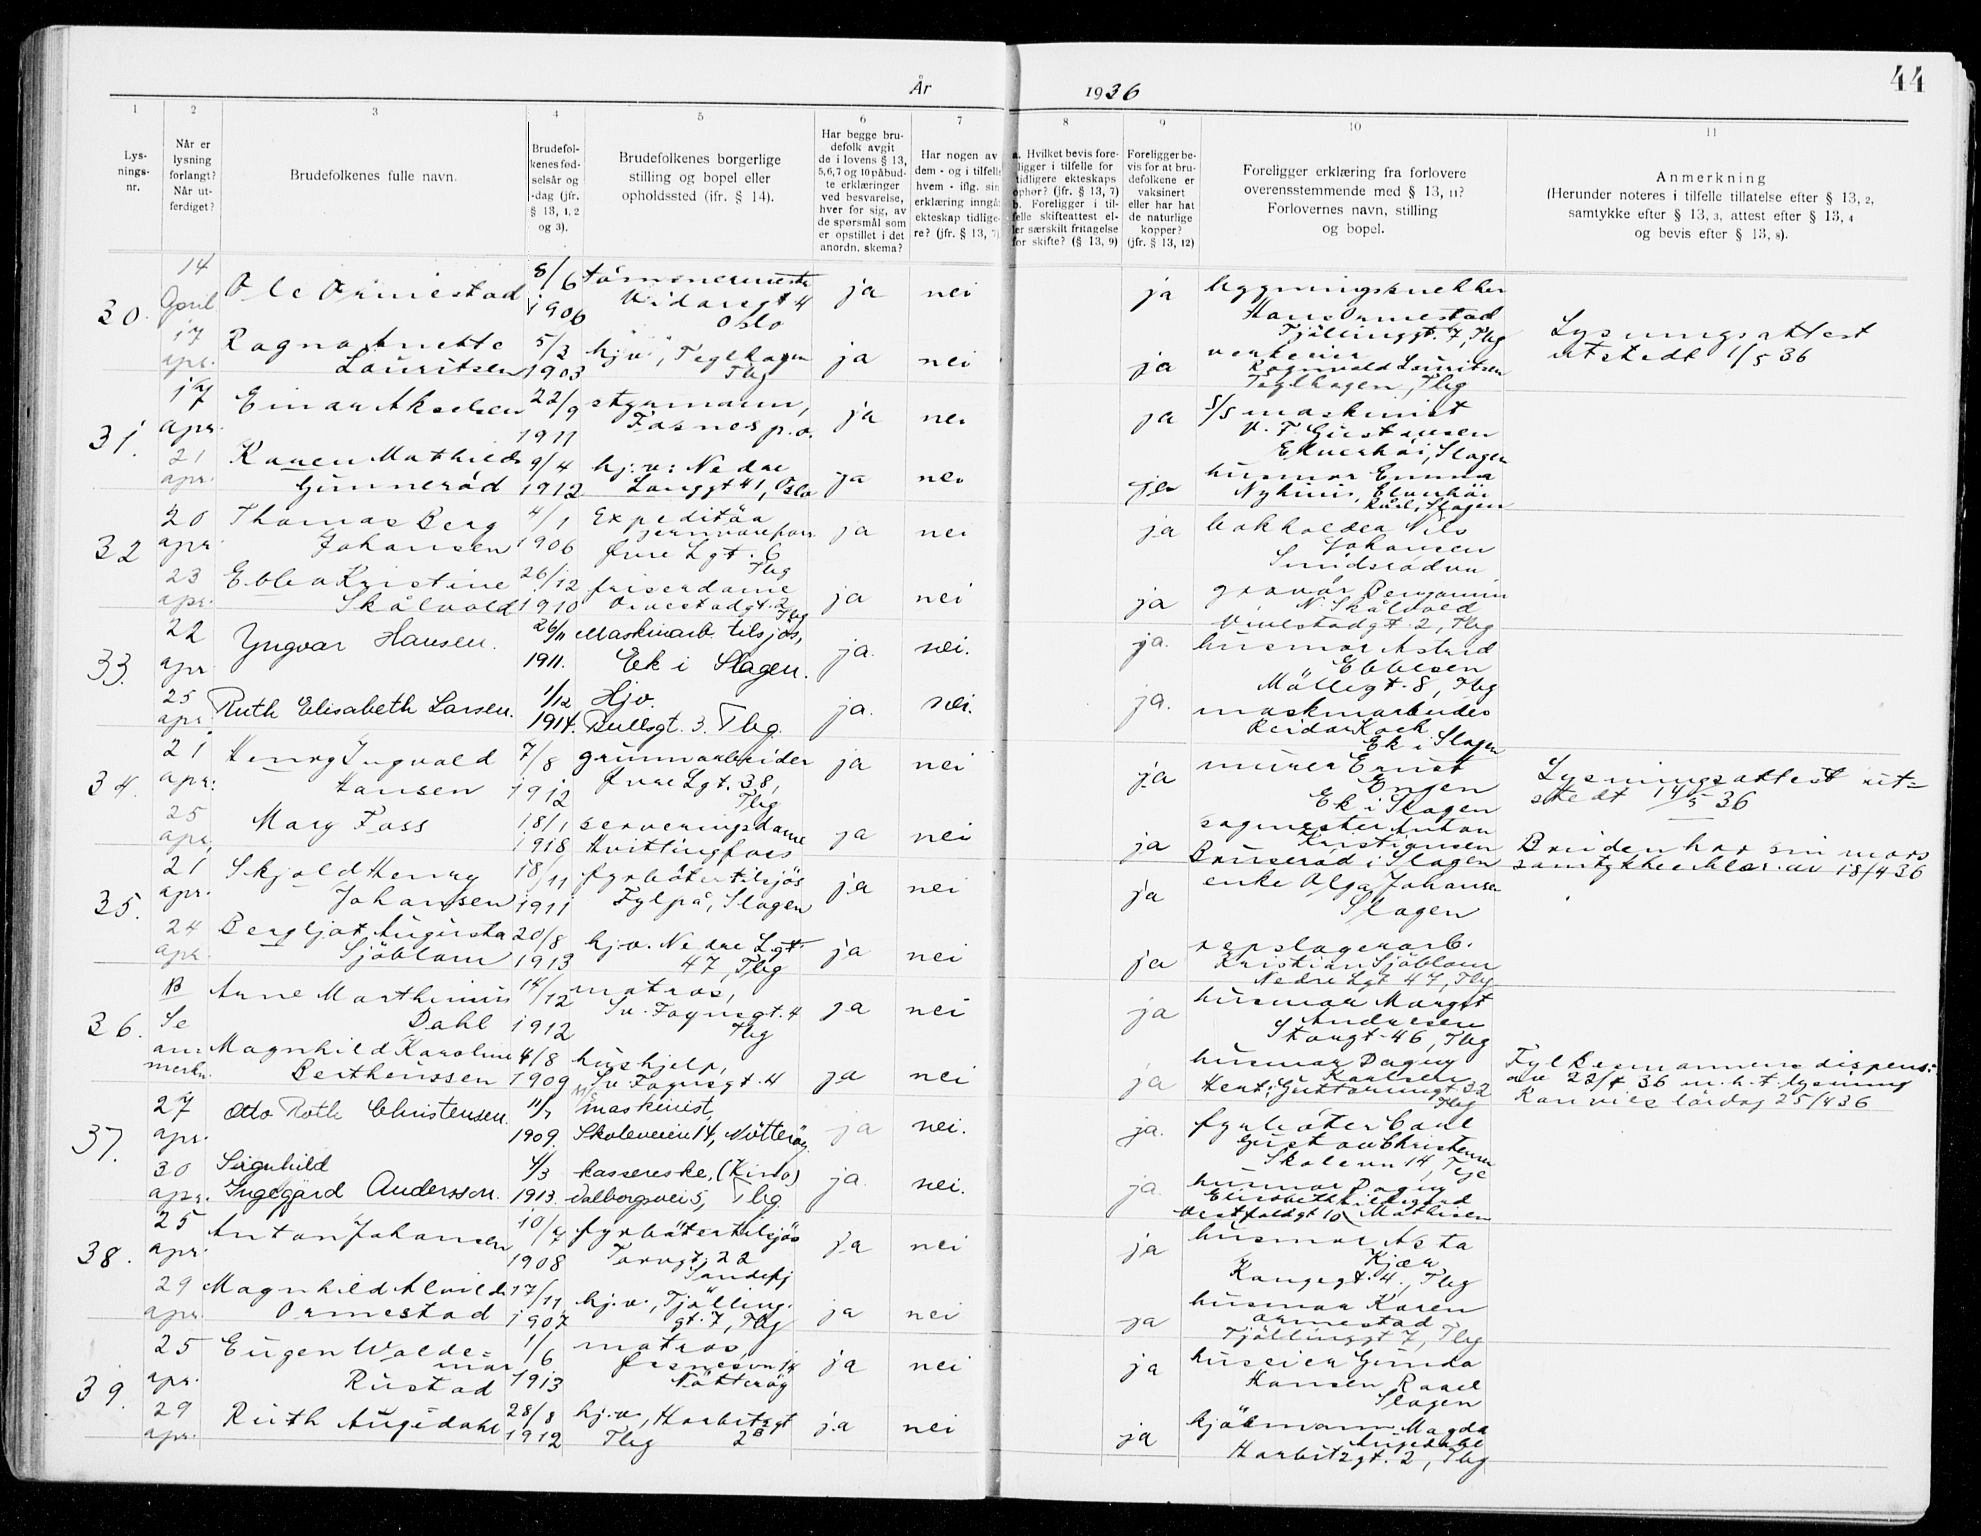 År 1936
44
1 2 3 4 5 6 7 8 9 10 11
Lys-
nings-
nr.
Når er
lysning
forlangt?
Når ut-
ferdiget?
Brudefolkenes fulle navn.
Brudefol-
kenes fød-
selsår og
-dag (jfr.
§ 13, 1, 2
og 3).
Brudefolkenes borgerlige
stilling og bopel eller
opholdssted (ifr. § 14).
Har begge bru-
defolk avgit
de i lovens § 13,
5,6,7 og 10 påbud-
te erklæringer
ved besvarelse,
hver for sig, av
de spørsmål som
er opstillet i det
anordn. skema?
Har nogen av
dem - og i tilfelle
hvem - iflg. sin
erklæring inngåt
ekteskap tidlige-
re? (jfr. § 13, 7)
a. Hvilket bevis fore-
ligger i tilfelle for
tidligere ekteskaps
ophør? (jfr. § 13, 7)
b. Foreligger i til-
felle skifteattest el-
ler særskilt fritagelse
for skifte? (§ 13, 9)
Foreligger be-
vis for at bru-
defolkene er
vaksinert
eller har hat
de naturlige
kopper?
(jfr. § 13, 12)
Foreligger erklæring fra forlovere
overensstemmende med § 13, 11?
Forlovernes navn, stilling
og bopel.
Anmerkning
(Herunder noteres i tilfelle tillatelse efter § 13, 2,
samtykke efter § 13, 3, attest efter § 13, 4
og bevis efter § 13, 8).
30.
14
April
Ole Ormestad
8/6
1906
tömmermester
Vidarsgt. 4
Oslo
ja nei ja
bygningssnekker
Hans Ormestad
Tjöllinggt. 7, Tbg
17
apr.
Ragna Anette
Lauritsen
5/3
1903
hj.v., Teglhagen
Tbg
ja nei ja
verkeier
Ragnvald Lauritsen
Teglhagen, Tbg
Lysningsattest
utstedt 1/5 36
31.
17
apr.
Einar Akselsen
22/9
1911
styrmann,
Fosnes p.o.
ja nei ja
s/s maskinist
V. F. Gustavsen
Ekverhöi, Slagen
21
apr.
Karen Mathilde
Gunneröd
9/4
1912
hj.v.: Nedre
Langgt 41, Oslo
ja nei ja
husmor Emma
Nyhuus, Elverhöi
Råel, Slagen
32
20
apr
Thomas Berg
Johansen
4/1
1906
Expeditör
jernvareforr.
Övre Lgt. 6
Tbg
ja nei ja
bokholder Nils
Johansen
Smidsrödvn
23
apr.
Ebba Kristine
Skålvold
26/12
1910
friserdame
Vinestadgt. 2
Tbg
ja nei ja
gravör Benjamin
N. Skålvold
Vinestadgt 2, Tbg
33.
22
apr
Yngvar Hansen.
26/11
1911.
Maskinarb. tilsjøs,
Eek i Slagen.
ja. nei. ja.
husmor Astrid
Ebbesen
Möllegt. 8, Tbg
25
apr.
Ruth Elisabeth Larsen.
1/12
1914.
Hjv.
Bullsgt. 3. Tbg.
ja. nei. ja.
maskinarbeider
Reidar Koch
Ek i Slagen
34.
21
apr.
Henry Ingvald
Hansen
7/8
1912
grunnarbeider
Övre Lgt. 38,
Tbg
ja nei ja
murer Ernst
Engen
Ek i Slagen
Lysningsattest ut=
stedt 14/5 36
25
apr.
Mary Foss
18/1
1918
serveringsdame
Hvittingfoss
ja nei ja
sagmester Anton
Kristiansen
Bruseröd i Slagen
Bruden har sin mors
samtykkeerklær. av 18/4 36
35.
21
apr.
Skjold Henry
Johansen
18/11
1911
fyrböter tilsjös
Fylpå, Slagen
ja nei ja
enke Olga Johansen
Slagen
24
apr.
Bergljot Augusta
Sjöblom
20/8
1913
hj.v. Nedre Lgt
47, Tbg
ja nei ja
repslagerarb.
Kristian Sjöblom
Nedre Lgt 47, Tbg
36.
NB
Se
an-
merkn.
Arne Marthinius
Dahl
14/12
1912
matros,
Sv. Foynsgt. 4
Tbg
ja nei ja
husmor Margit
Andresen
Storgt. 46, Tbg
Magnhild Karoline
Bertheussen
4/8
1909
hushjelp,
Sv. Foynsgt. 4
ja nei ja
husmor Dagny
Karlsen
Hert. Guttormsgt 32
Tbg
Fylkesmannens dispens:
av 22/4 36 m.h.t. lysning
Kan vies lördag 25/4 36
37.
27
apr.
Otto Roth Christensen.
11/7
1909.
M/S
maskinist,
Skoleveien 14, Nötteröy.
ja nei. ja.
fyrböter Carl
Gustav Christensen
Skolevn 14, Teie
30
apr.
Signhild
Ingegärd Andersson.
4/3
1913.
kassererske, (Kino)
Valborgsvei 5, Tbg.
ja. nei. ja.
husmor Dagny
Elisabeth Lillegård
Mathisen
Vestfoldgt 10
38.
25
apr.
Anton Johansen
10/7
1908
fyrböter tilsjös
Torvgt, 22
Sandefj
ja nei ja
husmor Asta
Kjær,
Kongegt. 4, Tbg
29
apr.
Magnhild Alvilde
Ormestad
17/11
1907
hj.v., Tjölling-
gt. 7, Tbg
ja nei ja
husmor Karen
Ormestad
Tjöllinggt 7, Tbg
39.
25
apr.
Eugen Walde=
mar
Rustad
1/6
1913
matros,
Örsnesvn 14
Nötteröy
ja nei ja
huseier Gunda
Hansen Raael
Slagen
29
apr.
Ruth Augedahl
28/8
1912
hj.v., Harbitzgt
Tbg 2B
ja nei ja
kjöbmann Magda
Augedahl
Harbitzgt. 2, Tbg